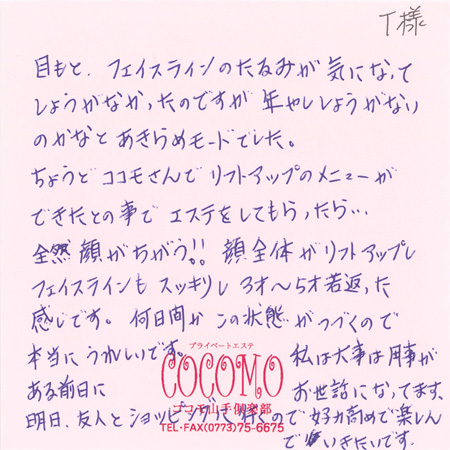 T様
目もと、フェイスラインのたるみが気になって
しょうがなかったのですが年やししょうがない
のかなとあきらめモードでした。
ちょうどココモさんでリフトアップのメニューが
できたとの事でエステをしてもらったら…
全然顔がちがう!!顔全体がリフトアップし
フェイスラインもスッキリし3才〜5才若返った
感じです。何日間かこの状態がつづくので
本当にうれしいです。私は大事な用事が
ある前日にお世話になってます。
明日、友人とショッピングに行くので好力高めで楽しん
でいきたいです。
プライベートエステ
COCOMO
ココモ山手倶楽部
TEL・FAX(0773)75-6675